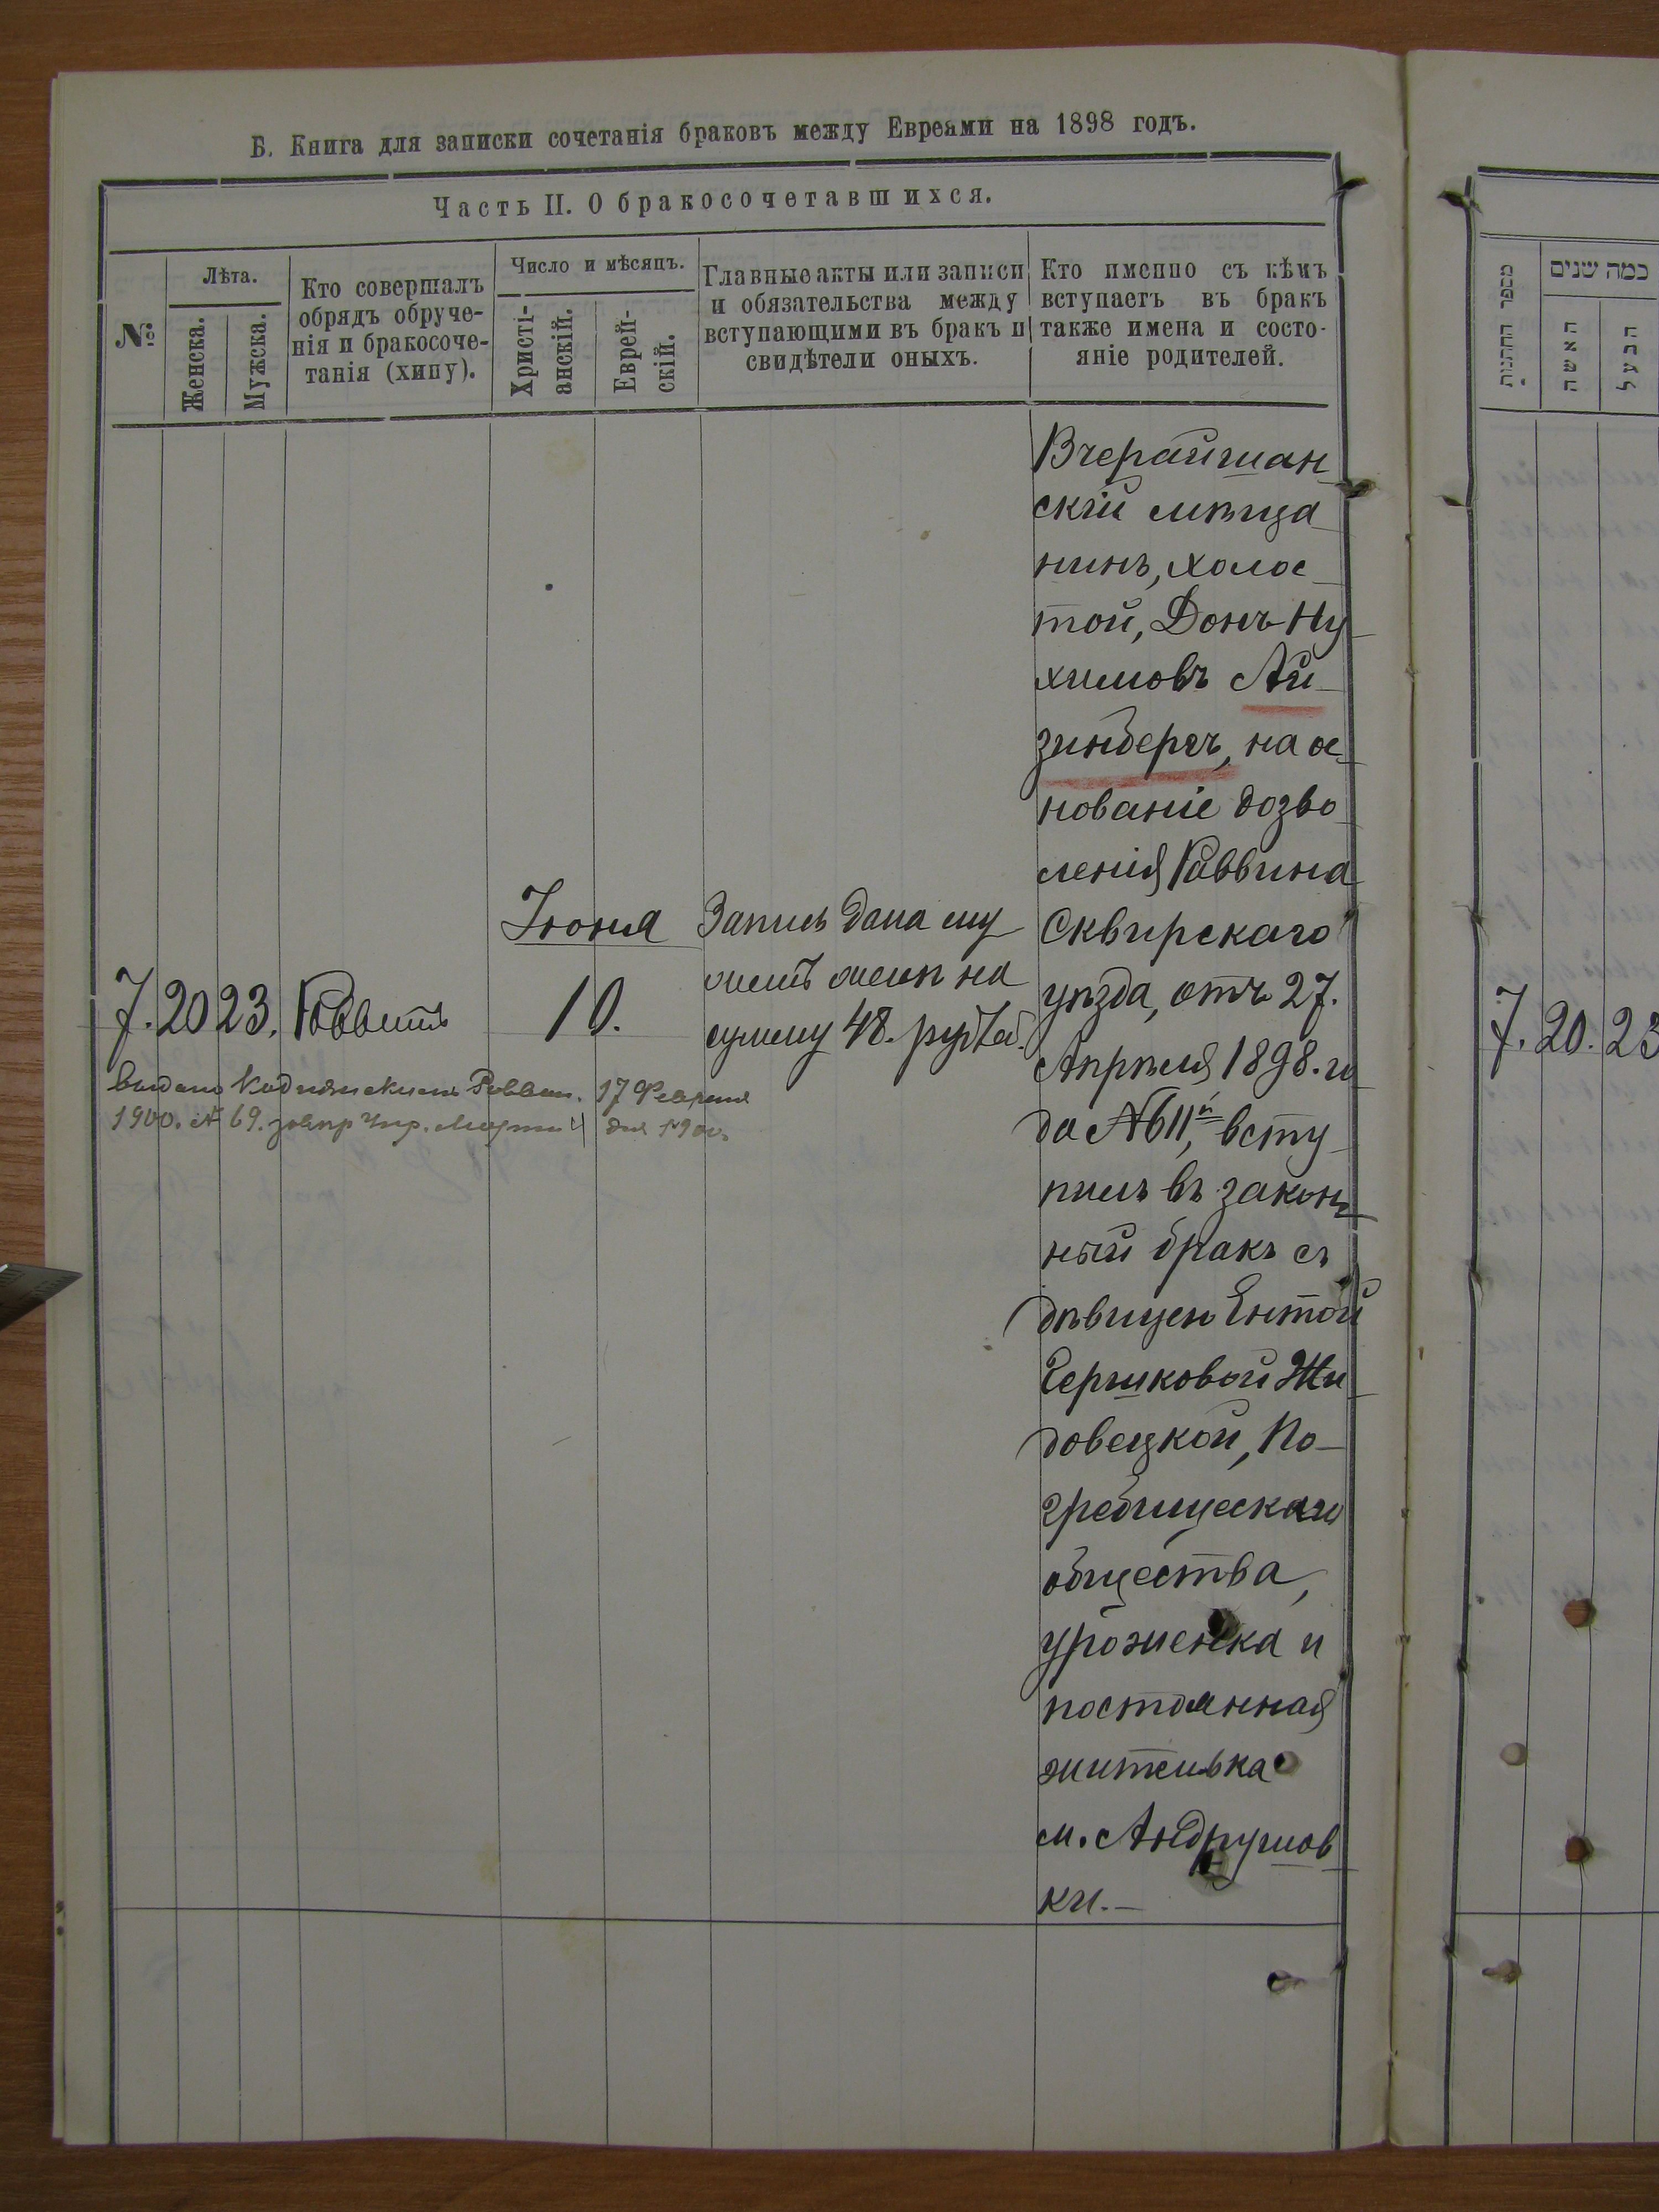 Б. Книга для записки сочетанія браковъ между Евреями на 1898 годъ.
Часть II. О бракосочетавшихся.
№
Лѣта.
Женска.
Мужска.
Кто совершалъ
обрядъ обруче-
нія и бракосоче-
танія (хипу).
Число и мѣсяцъ.
Христі-
анскій.
Еврей-
скій.
Главные акты или записи
и обязательства между
вступающими въ бракъ и
свидѣтели оныхъ.
Кто именно съ кѣмъ
вступаетъ въ бракъ
также имена и состо-
яніе родителей.
7. 20 23. Раввинъ
Іюня
10.
Запись дана му
жемъ женѣ на
сумму 48. рублей.
выдано Раввин. 17 Февраля
1900. № 69.
дня 1900.
Вчерайшан
скій мѣща
нинъ, холос
той, Донъ Ну
химовъ Ай
зинбергъ, на ос
нованіе дозво
ленія Раввина
Сквирскаго
уѣзда, отъ 27.
Апрѣля 1898. го
да № 611й, всту
пилъ въ закон
ный бракъ съ
дѣвицею Ентой
Гершковой Жи
довецкой, По-
гребищескаго
общества,
уроженка и
постоянная
жителька
м. Андрушов
ки.-
מספר החתנות
כמה שנים
האשה
הבעל
7. 20. 23